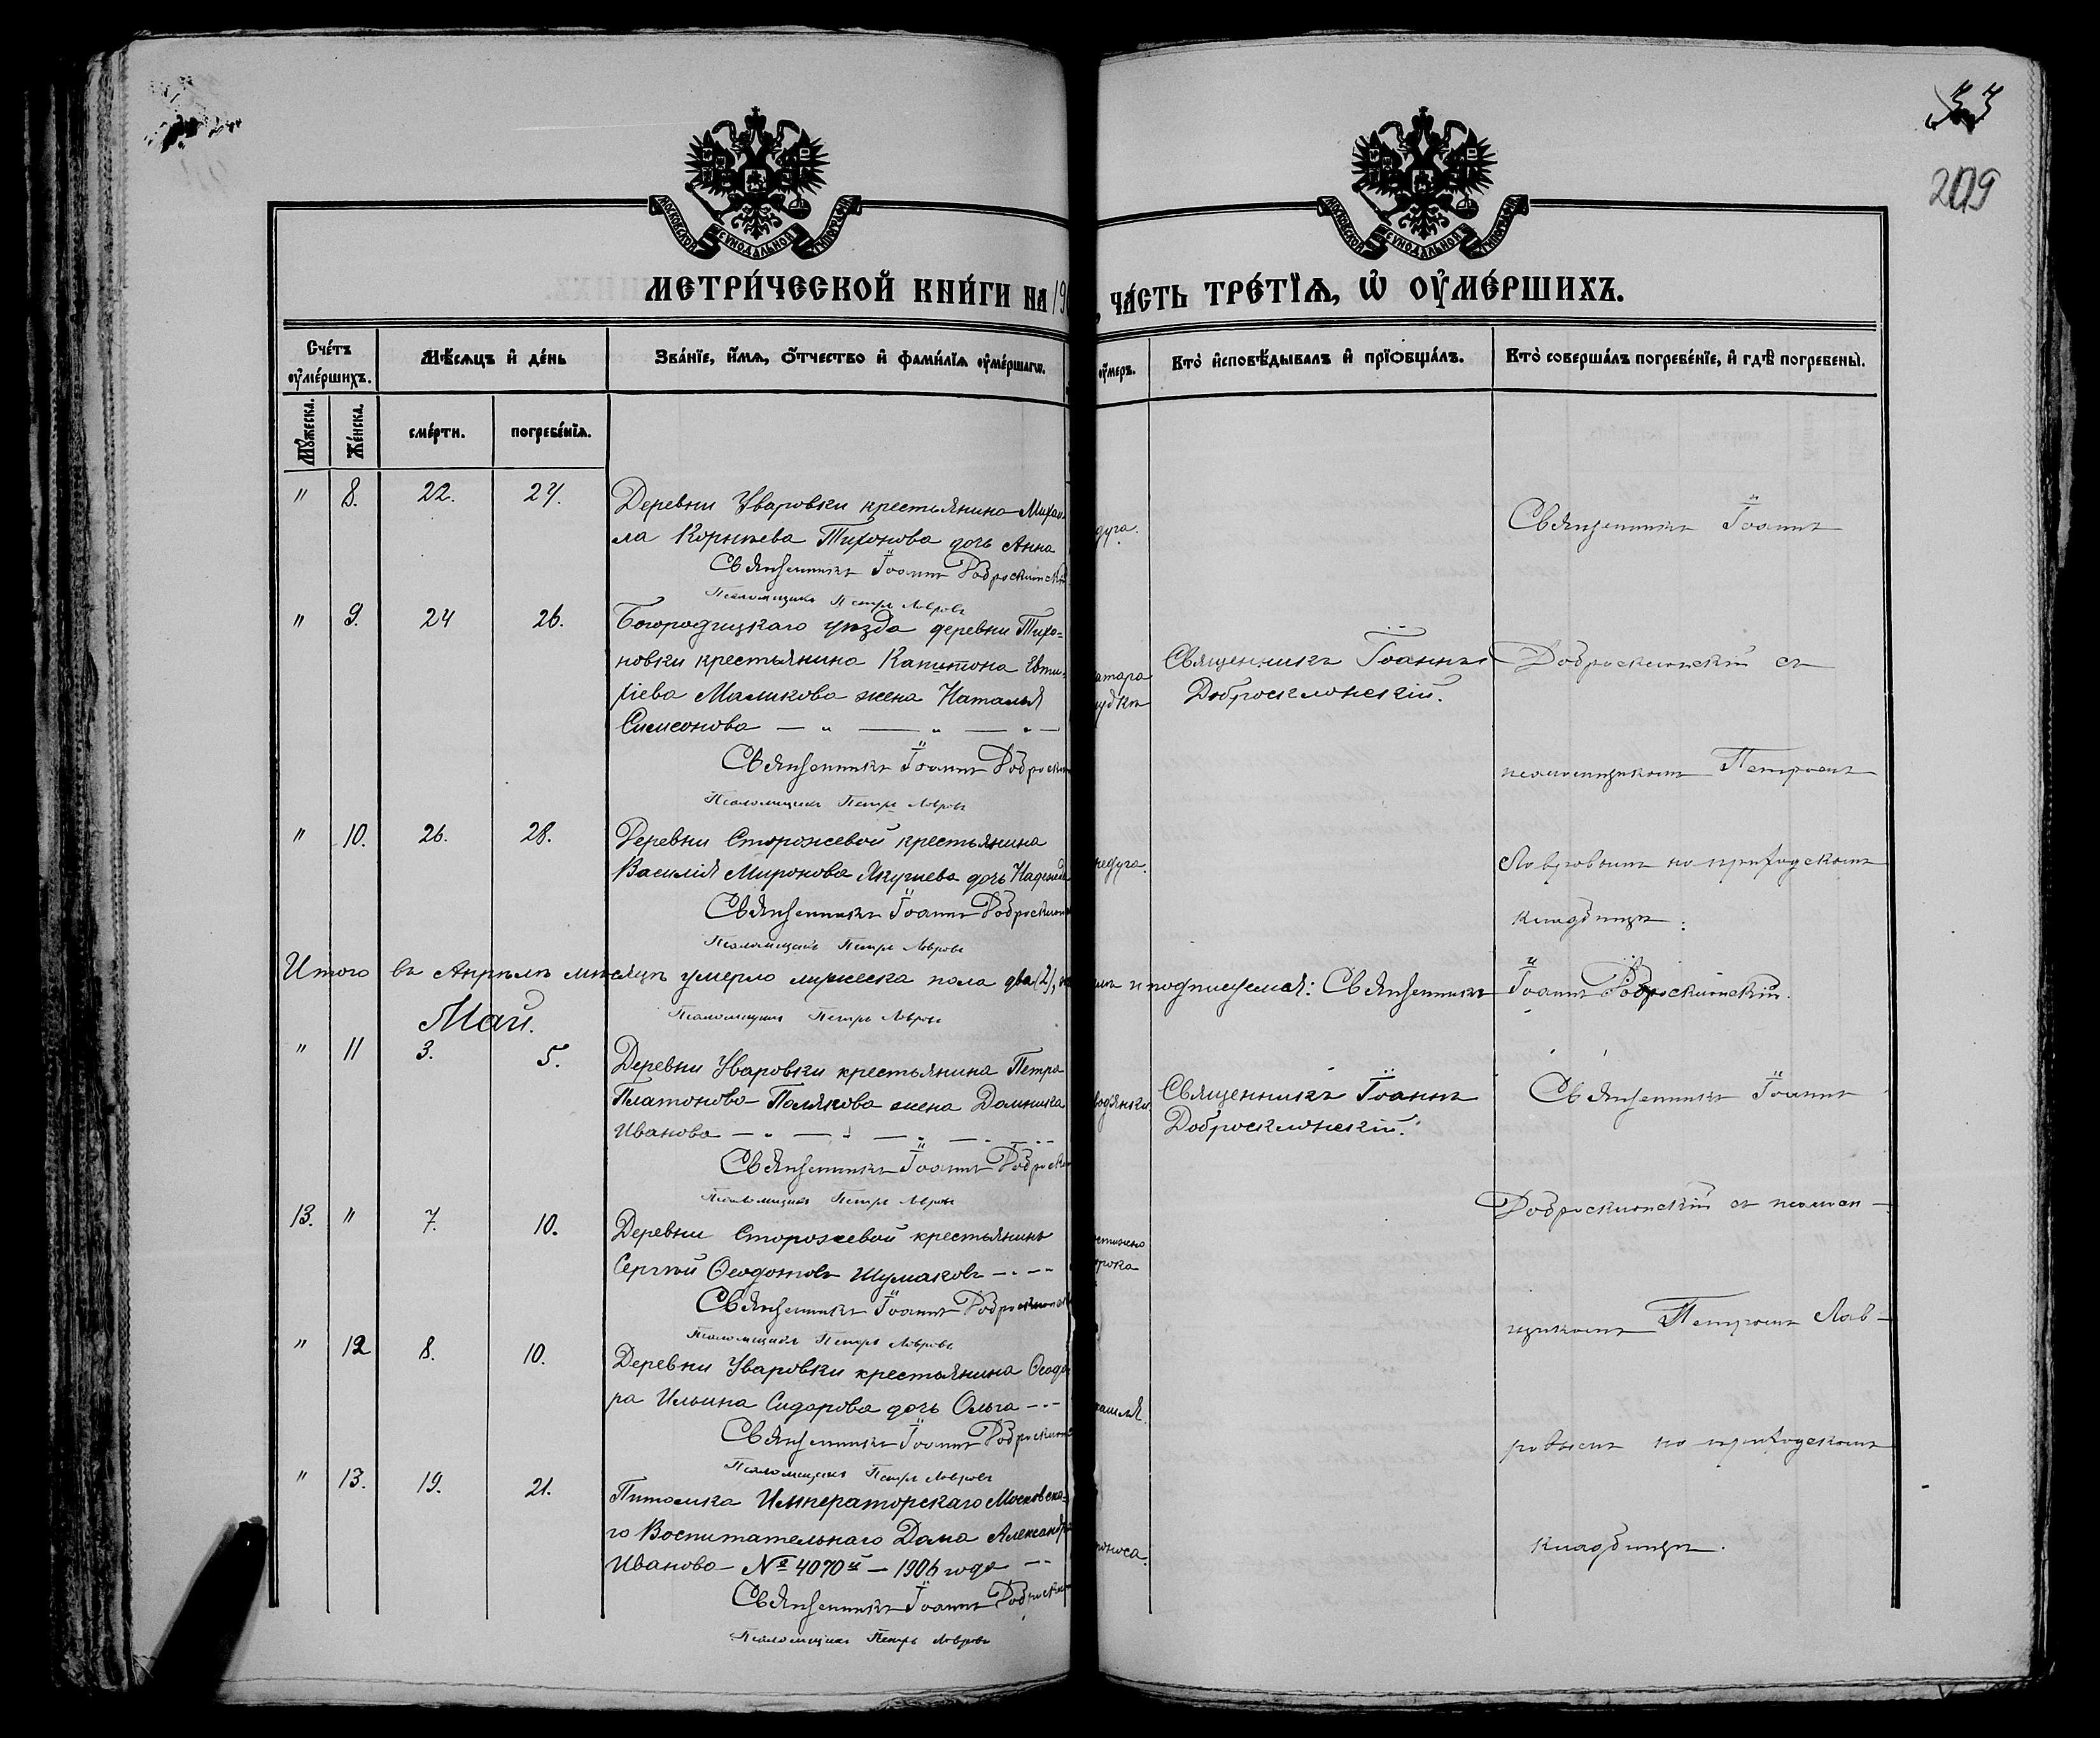 33
209
МОСКОВСКОЙ СѴНОДАЛЬНОЙ ТѴПОГРАФІИ
МОСКОВСКОЙ СѴНОДАЛЬНОЙ ТѴПОГРАФІИ
МЕТРИ́ЧЕСКОЙ КНИ́ГИ НА 19
, ЧА́СТЬ ТРЕ́ТІѦ, Ѡ҆ ОУ҆МЕ́РШИХЪ.
Сче́тъ оу҆ме́ршихъ.
Мѣ́сѧцъ и҆ де́нь
Зва́нїе, и҆́мѧ, ѻ҆́тчество и҆ фами́лїѧ оу҆ме́ршагѡ.
оу҆́меръ.
Кто̀ и҆сповѣ́дывалъ и҆ прїѡбща́лъ.
Кто̀ соверша́лъ погребе́нїе, и҆ гдѣ̀ погребены̀.
Мꙋ́жеска.
Же́нска.
сме́рти.
погребе́нїѧ.
" 8. 22. 24.
Деревни Уваровки крестьянина Михаи-
ла Корнѣева Тихонова дочь Анна
Священникъ Іоаннъ Доброклонскій
Псаломщикъ Петръ Лавровъ
дуга.
Священникъ Іоаннъ
" 9. 24 26.
Богородицкаго уѣзда деревни Тихо=
новки крестьянина Капитона Евти-
хіева Маликова жена Наталья
Симеонова — " — " — " —
Священникъ Іоаннъ
Псаломщикъ Петръ Лавровъ
атара
Священникъ Іоаннъ
Добросклонскій.
Добросклонскій съ
псаломщикомъ Петромъ
" 10. 26. 28.
Деревни Сторожевой крестьянина
Василія Миронова Якушева дочь Надежда
Священникъ Іоаннъ
Псаломщикъ Петръ Лавровъ
недуга.
Лавровымъ на приходскомъ
кладбищѣ.
Итого въ Апрѣлѣ мѣсяцѣ умерло мужеска пола два (2),
и подписуемся: Священникъ Іоаннъ Добросклонскій.
Псаломщикъ Петръ Лавровъ
Май.
" 11 3. 5.
Деревни Уваровки крестьянина Петра
Платонова Полякова жена Домника
Иванова — " — " — " —
Священникъ Іоаннъ
Псаломщикъ Петръ Лавровъ
Священникъ Іоаннъ
Добросклонскій.
Священникъ Іоаннъ
Добросклонскій съ псаломщ-
13. " 7. 10.
Деревни Сторожевой крестьянинъ
Сергѣй Ѳеодотовъ Шумаковъ — " —
Священникъ Іоаннъ
Псаломщикъ Петръ Лавровъ
рока
щикомъ Петромъ Лав-
" 12 8. 10.
Деревни Уваровки крестьянина Ѳеодо-
ра Ильина Сидорова дочь Ольга — " —
Священникъ Іоаннъ
Псаломщикъ Петръ Лавровъ
кашля.
ровымъ на приходскомъ
" 13. 19. 21.
Питомка Императорскаго Московска-
го Воспитательнаго Дома Александра
Иванова № 4070й — 1906 года —
Священникъ Іоаннъ
Псаломщикъ Петръ Лавровъ
поноса.
кладбищѣ.